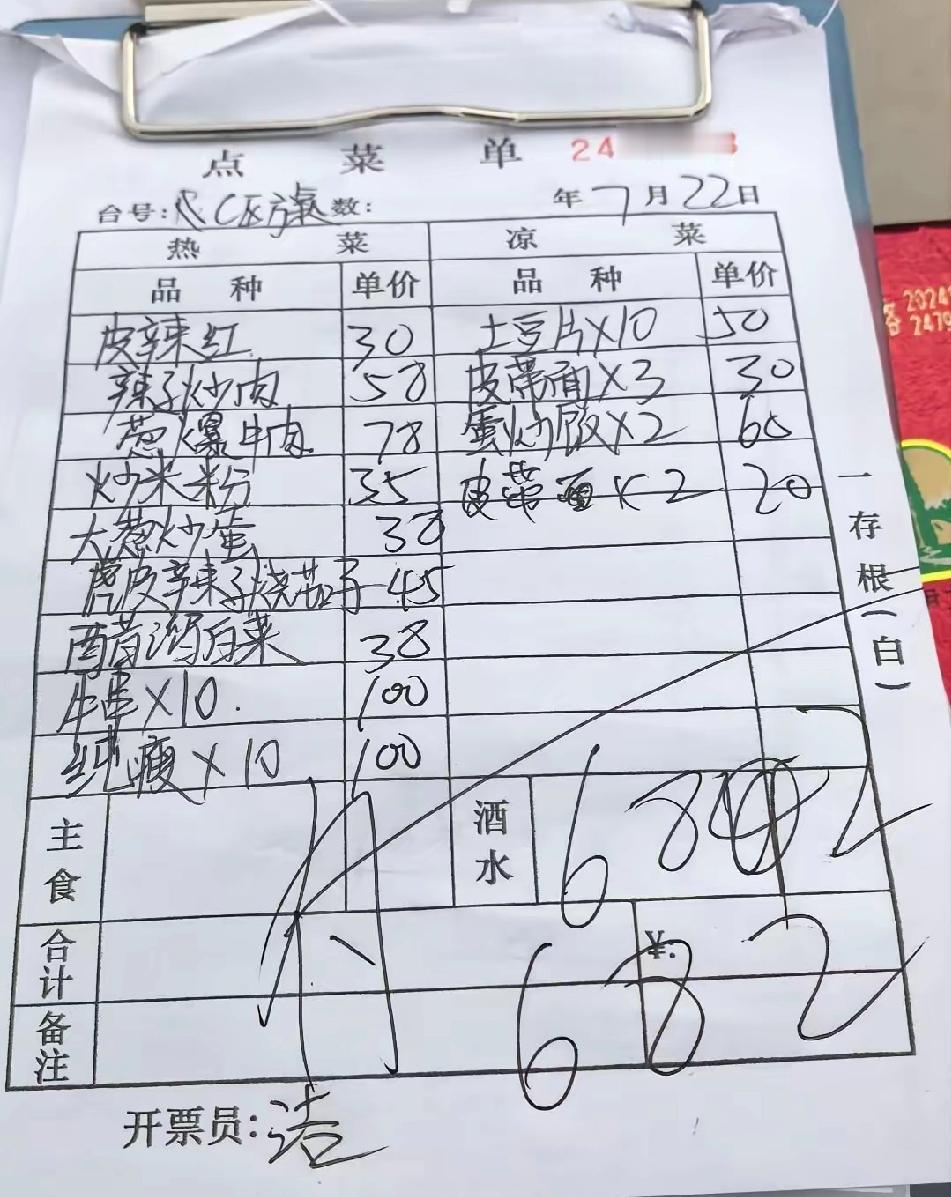 点 菜 单 24
台号: C区 数: 年7月22日
热 菜 凉 菜
品 种 单价 品 种 单价
皮辣红 30 土豆片X10 50
辣子炒肉 58 皮带面X3 30
葱爆牛肉 78 蛋炒饭X2 60
炒米粉 35 皮带面X2 20
大葱炒蛋 38
虎皮辣子烧茄子 45
白菜 38
牛串X10. 100
纯瘦X10 100
一存根(白)
主食 酒水
682
合计 ¥.
682
备注
开票员: 洁
2024
247